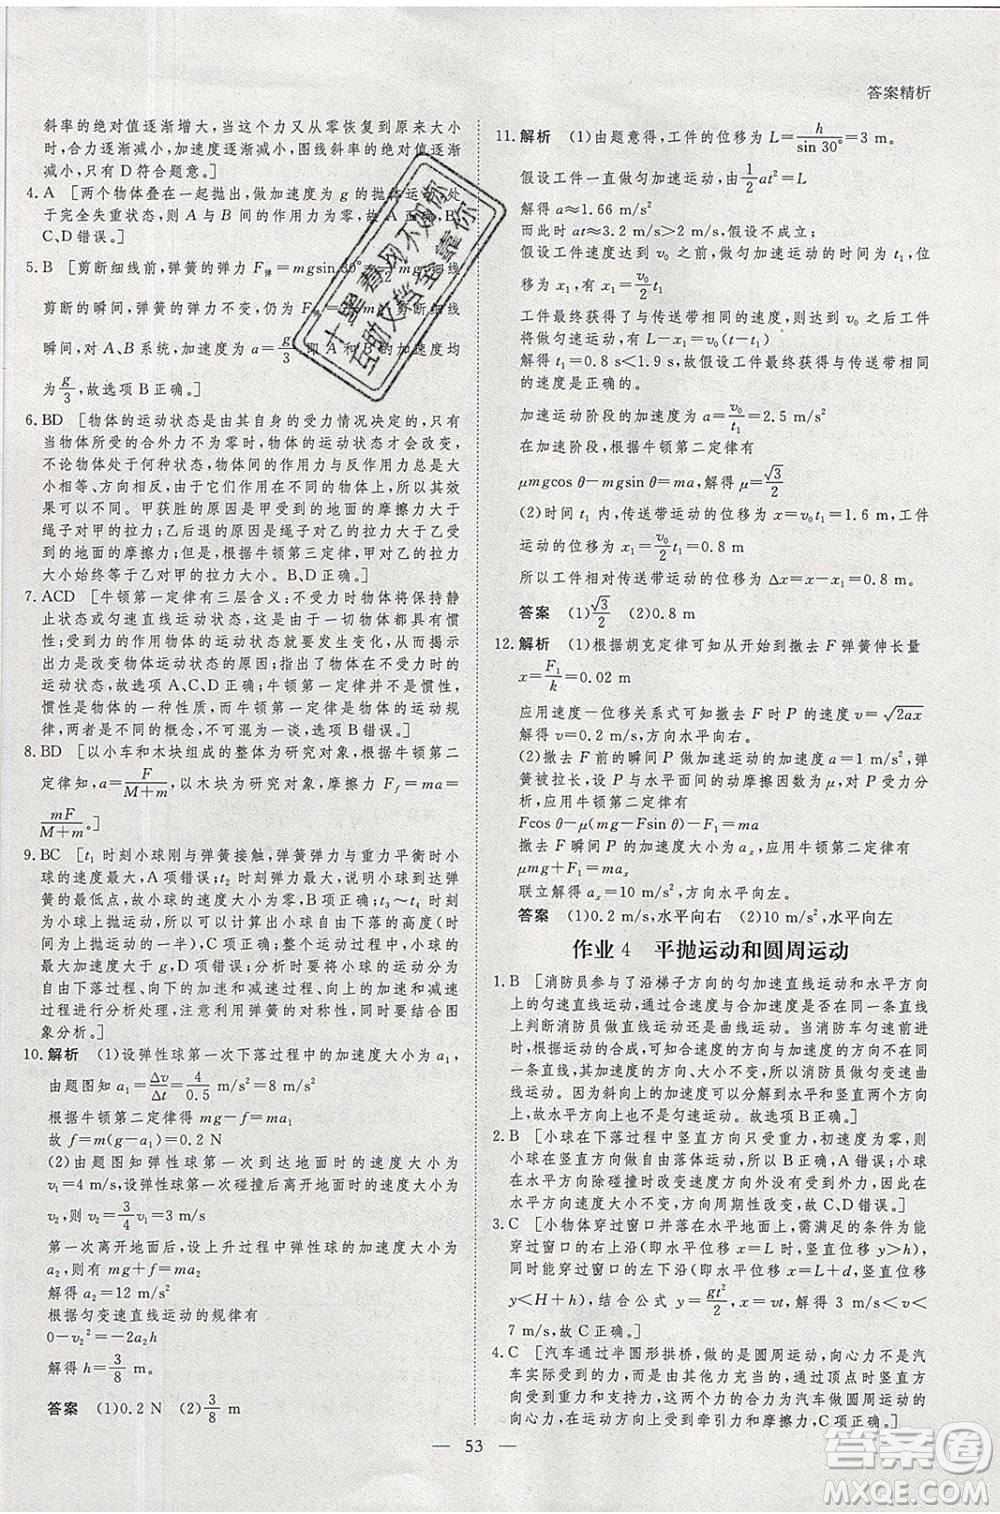 答案精析
斜率的绝对值逐渐增大,当这个力从零恢复到原来大小
时,合力逐渐减小,加速度逐渐减小,图线斜率逐渐
减小,只有 D 符合题意。]
4. A [两个物体叠在一起抛出,做加速度为 g 的抛体运动,处
于完全失重状态,所以 A 与 B 间的作用力为零,故 A 正确,B、
C、D 错误。]
5. B [剪断细线前,弹簧的弹力 F弹=mgsin 30°= 细线
剪断的瞬间,弹簧的弹力不变,仍为 F弹= 剪断细线
瞬间,对 A、B 系统,加速度为 a=g/3,即 A 和 B 的加速度均
为 g/3,故选项 B 正确。]
6. BD [物体的运动状态是由其自身的受力情况决定的,只有
当物体所受的合外力不为零时,物体的运动状态才会改变,
不论物体处于何种状态,物体间的作用力与反作用力总是大
小相等、方向相反,但由于它们作用在不同的物体上,其效
果可以不同。甲获胜的原因是甲受到的地面的摩擦力大于
绳子对甲的拉力;乙后退的原因是绳子对乙的拉力大于乙受
到的地面的摩擦力;但是,根据牛顿第三定律,甲对乙的拉力
大小始终等于乙对甲的拉力大小。B、D 正确。]
7. ACD [牛顿第一定律有三层含义:不受力时物体将保持静
止状态或匀速直线运动状态,这也说明了一切物体均有惯
性;受到力的作用物体的运动状态就要发生变化,从而揭示
出力是改变物体运动状态的原因,指出了力与运动状态的
运动的关系,故选项 A、C、D 正确;牛顿第一定律并不是惯性,
惯性是物体的一种性质,牛顿第一定律是物体的运动规
律,是两个不同的概念,不可混为一谈,选项 B 错误。]
8. BD [以小车和木块组成的整体为研究对象,根据牛顿第二
定律知,a=F/(M+m),以木块为研究对象,摩擦力 Ff=ma=
mF/(M+m)。]
9. BC [t₁ 时刻小球刚与弹簧接触,弹力与重力平衡时小
球的速度最大,A 项错误;t₂ 时刻,弹力最大,说明小球到达弹
簧的最低点,故小球的速度为零,B 项正确;t₃~t₄ 时间段为
小球上抛运动,所以可以计算出小球自由下落的高度(时间
为上抛运动的一半),C 项正确;根据小球的运动过程中小球
自由下落的速度、和弹簧接触过程中的加速过程和减速过
程进行分析处理,注意利用弹簧的对称性,同时要会结合图
象分析。]
10. 解析 (1)设弹性球第一次下落过程中的加速度大小为 a₁,
由题图知 a₁=Δv/Δt=4/0.5 m/s²=8 m/s²
根据牛顿第二定律得 mg-f=ma₁
故 f=m(g-a₁)=0.2 N
(2)由题图知弹性球第一次到达地面时的速度大小为
v₁=4 m/s,设弹性球第一次碰撞后离开地面时的速度大小为
v₂,则 v₂=3/4 v₁=3 m/s
第一次离开地面后,设上升过程中弹性球的加速度大小为
a₂,则有 mg+f=ma₂
解得 a₂=12 m/s²
根据匀变速直线运动的规律有
0-v₂²=-2a₂h
解得 h=3/8 m。
答案 (1)0.2 N (2)3/8 m
11. 解析 (1)由题意得,工件的位移为 L=h/sin 30°=3 m。
假设工件一直做匀加速运动,有 1/2 at²=L
解得 a≈1.66 m/s²
而此时 at≈3.2 m/s>2 m/s,假设不成立;
假设工件速度达到 v₀ 前,做匀加速运动的时间为 t₁,
位移为 x₁,有 x₁=v₀/2 t₁
假设工件最终与传送带相对静止,则达到 v₀ 之后工件将
做匀速运动,有 L-x₁=v₀(t-t₁)
解得 t₁=0.8 s<1.9 s,故假设工件最终与传送带相同
的速度是正确的。
加速运动阶段的加速度为 a=v₀/t₁=2.5 m/s²
在加速阶段,根据牛顿第二定律有
μmgcos θ-mgsin θ=ma,解得 μ=√3/2
(2)时间 t₁ 内,传送带运动的位移为 x=v₀t₁=1.6 m,工件
运动的位移为 x₁=v₀/2 t₁=0.8 m
所以工件相对传送带运动的位移为 Δx=x-x₁=0.8 m
答案 (1)√3/2 (2)0.8 m
12. 解析 (1)根据胡克定律可知从开始到撤去 F 弹簧伸长量
x=F₁/k=0.02 m
应用速度—位移关系式可知撤去 F 时 P 的速度 v=√2ax
解得 v=0.2 m/s,方向水平向右。
(2)撤去 F 前的瞬间 P 的加速度为 a=1 m/s²,水平向右,弹
簧被拉长,设 P 与水平面间的动摩擦因数为 μ,对 P 受力分
析,应用牛顿第二定律有
Fcos θ-μ(mg-Fsin θ)-F₁=ma
撤去 F 的瞬间,设加速度大小为 aₓ,应用牛顿第二定律有
μmg+F₁=maₓ
联立解得 aₓ=10 m/s²,方向水平向左。
答案 (1)0.2 m/s,水平向右 (2)10 m/s²,水平向左
作业 4 平抛运动和圆周运动
1. B [消防员参与了沿梯子方向的匀加速直线运动和水平方向
上的匀速直线运动,通过合速度与合加速度是否在同一条直线
上判断消防员做直线运动还是曲线运动。当消防车匀速前进
时,根据运动的合成,合速度的方向与合加速度的方向不在同
一条直线上,其加速度的方向、大小不变,所以消防员做匀变速
曲线运动。因为斜向上的加速度可分解为水平和竖直两个方
向,故其水平方向上不是匀速运动,即只有 B 正确。]
2. B [小球在下落过程中竖直方向只受重力,初速度为零,所
以竖直方向为自由落体运动,A 错误;小球与墙壁碰撞前后
在水平方向除碰撞时改变速度方向外,不受外力,故在水平
方向速度大小不变,方向周期性改变,故 C、D 错误。]
3. C [小物体穿过窗口并落在水平地面上,需满足的条件为能
穿过窗口的右沿(即水平位移 x=L 时,竖直位移 y>h),
同时能穿过窗口的左沿(即水平位移 x=L+d,竖直位移
y<H+h),结合公式 y=gt²/2,x=vt 解得 3 m/s<v<
7 m/s,故 C 正确。]
4. C [汽车通过半圆形拱桥,做的是圆周运动,向心力不为零,汽
车实际受到的力是重力、支持力、牵引力和摩擦力,向心力是重
力和支持力,这两个力的合力为汽车做圆周运动提供
向心力,在最高点时受到与牵引力和摩擦力,故 C 正确。]
— 53 —
十里春风不如你
互助文档全靠你
答案卷
MXQE.COM